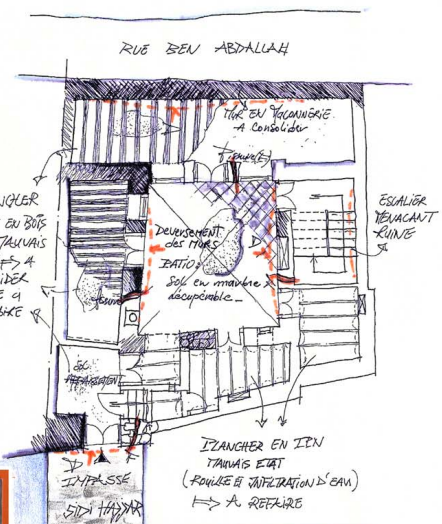 RUE BEN ABDALLAH
MUR EN MAÇONNERIE
A Consolider
Fissure(E)
ESCALIER
MENACANT
RUINE
EN BOIS
MAUVAIS
Deversement
des MURS
PATIO:
Sol en marbre
récupérable_
fissure
SOL
AFFAISSEMENT
PLANCHER EN IPN
MAUVAIS ETAT
(ROUILLE & INFILTRATION D'EAU)
⇒ A REFAIRE
IMPASSE
SIDI HADDAR